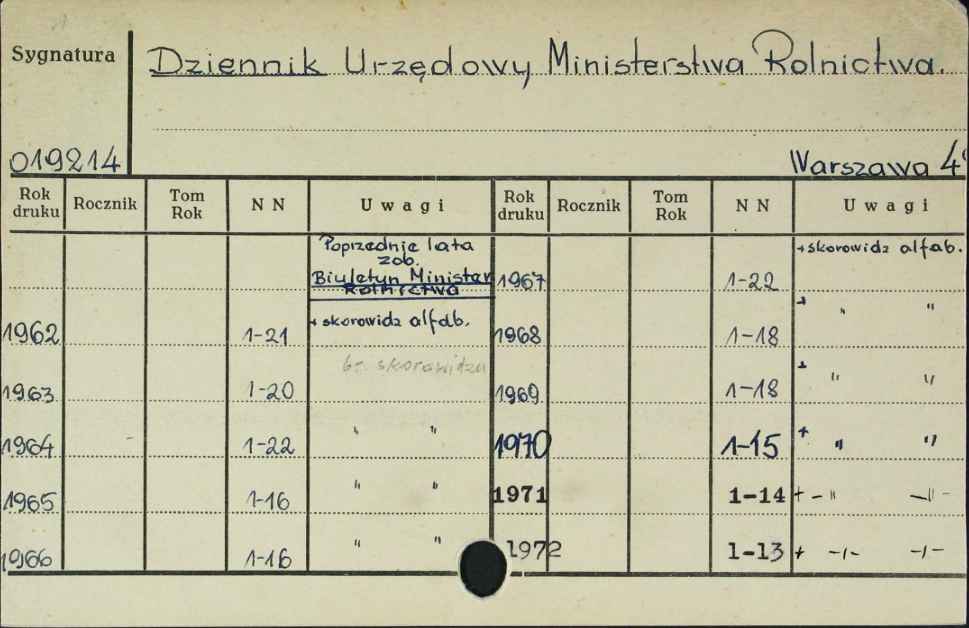 Sygnatura
Dziennik Urzędowy Ministerstwa Rolnictwa.
019214
Warszawa 4°
Rok druku Rocznik Tom Rok N N Uwagi Rok druku Rocznik Tom Rok N N Uwagi
Poprzednie lata
zob.
Biuletyn Minister
Rolnictwa
1967 1-22 + skorowidz alfab.
1962 1-21 + skorowidz alfab. 1968 1-18 + " "
br. skorowidzu
1963 1-20 1969 1-18 + " "
1964 1-22 " " 1970 1-15 + " "
1965 1-16 " " 1971 1-14 + -"- -"-
1966 1-16 " " 1972 1-13 + -/- -/-